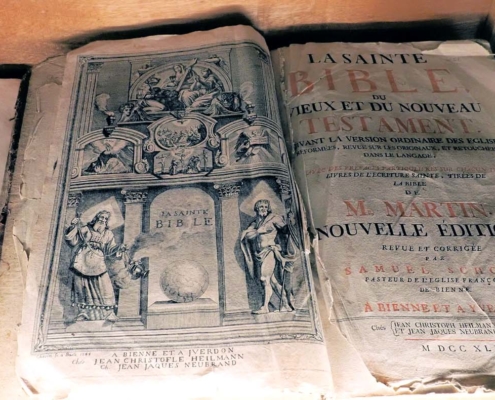 LA SAINTE
BIBLE
A BIENNE ET A YVERDON
Chés JEAN CHRISTOFLE HEILMANN
Chés JEAN JAQUES NEUBRAND
LA SAINTE
BIBLE
DU
VIEUX ET DU NOUVEAU
TESTAMENT
VANT LA VERSION ORDINAIRE DES EGLISE
REFORMÉES, REVUE SUR LES ORIGINAUX, ET RETOUCHÉE
DANS LE LANGAGE;
LIVRES DE L'ECRITURE SAINTE, TIRÉES DE
LA BIBLE
DE
M. MARTIN
NOUVELLE EDITION
REVUE ET CORRIGÉE
PAR
SAMUEL SCHO
PASTEUR DE L'EGLISE FRANÇ
DE BIENNE
A BIENNE ET A Y
Chés JEAN CHRISTOFLE HEILMAN
ET JEAN JAQUES NEUBRAN
M DCC XL